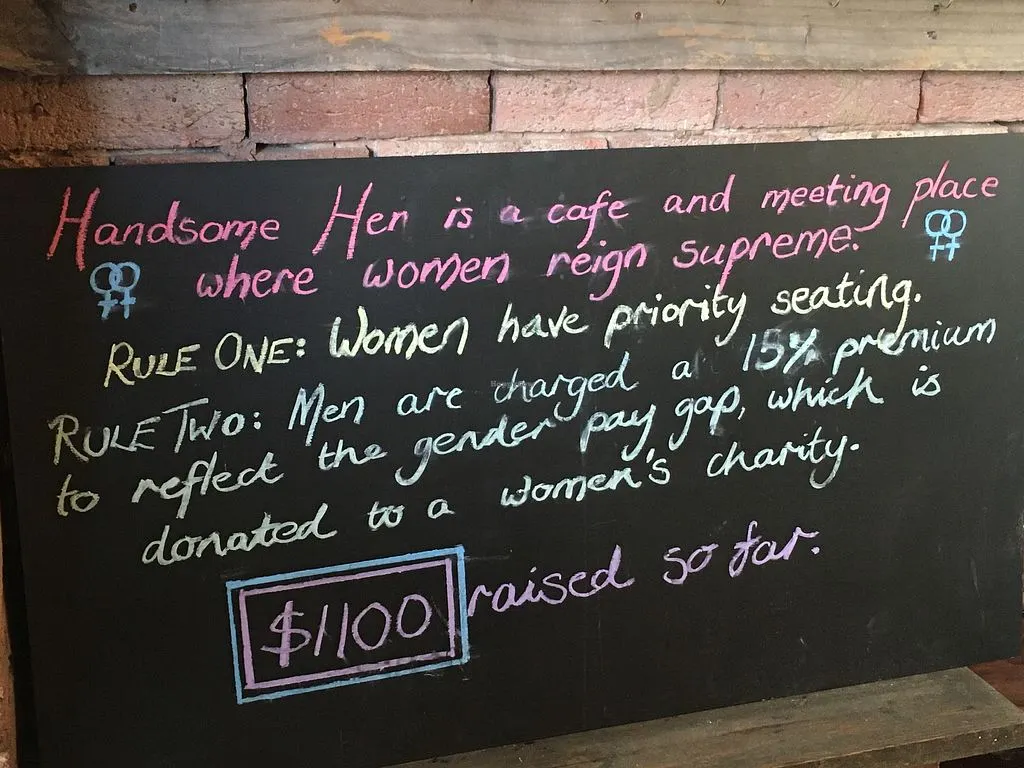 Handsome Her is a cafe and meeting place
where women reign supreme.
RULE ONE: Women have priority seating.
RULE TWO: Men are charged a 15% premium
to reflect the gender pay gap, which is
donated to a women's charity.
$1100 raised so far.